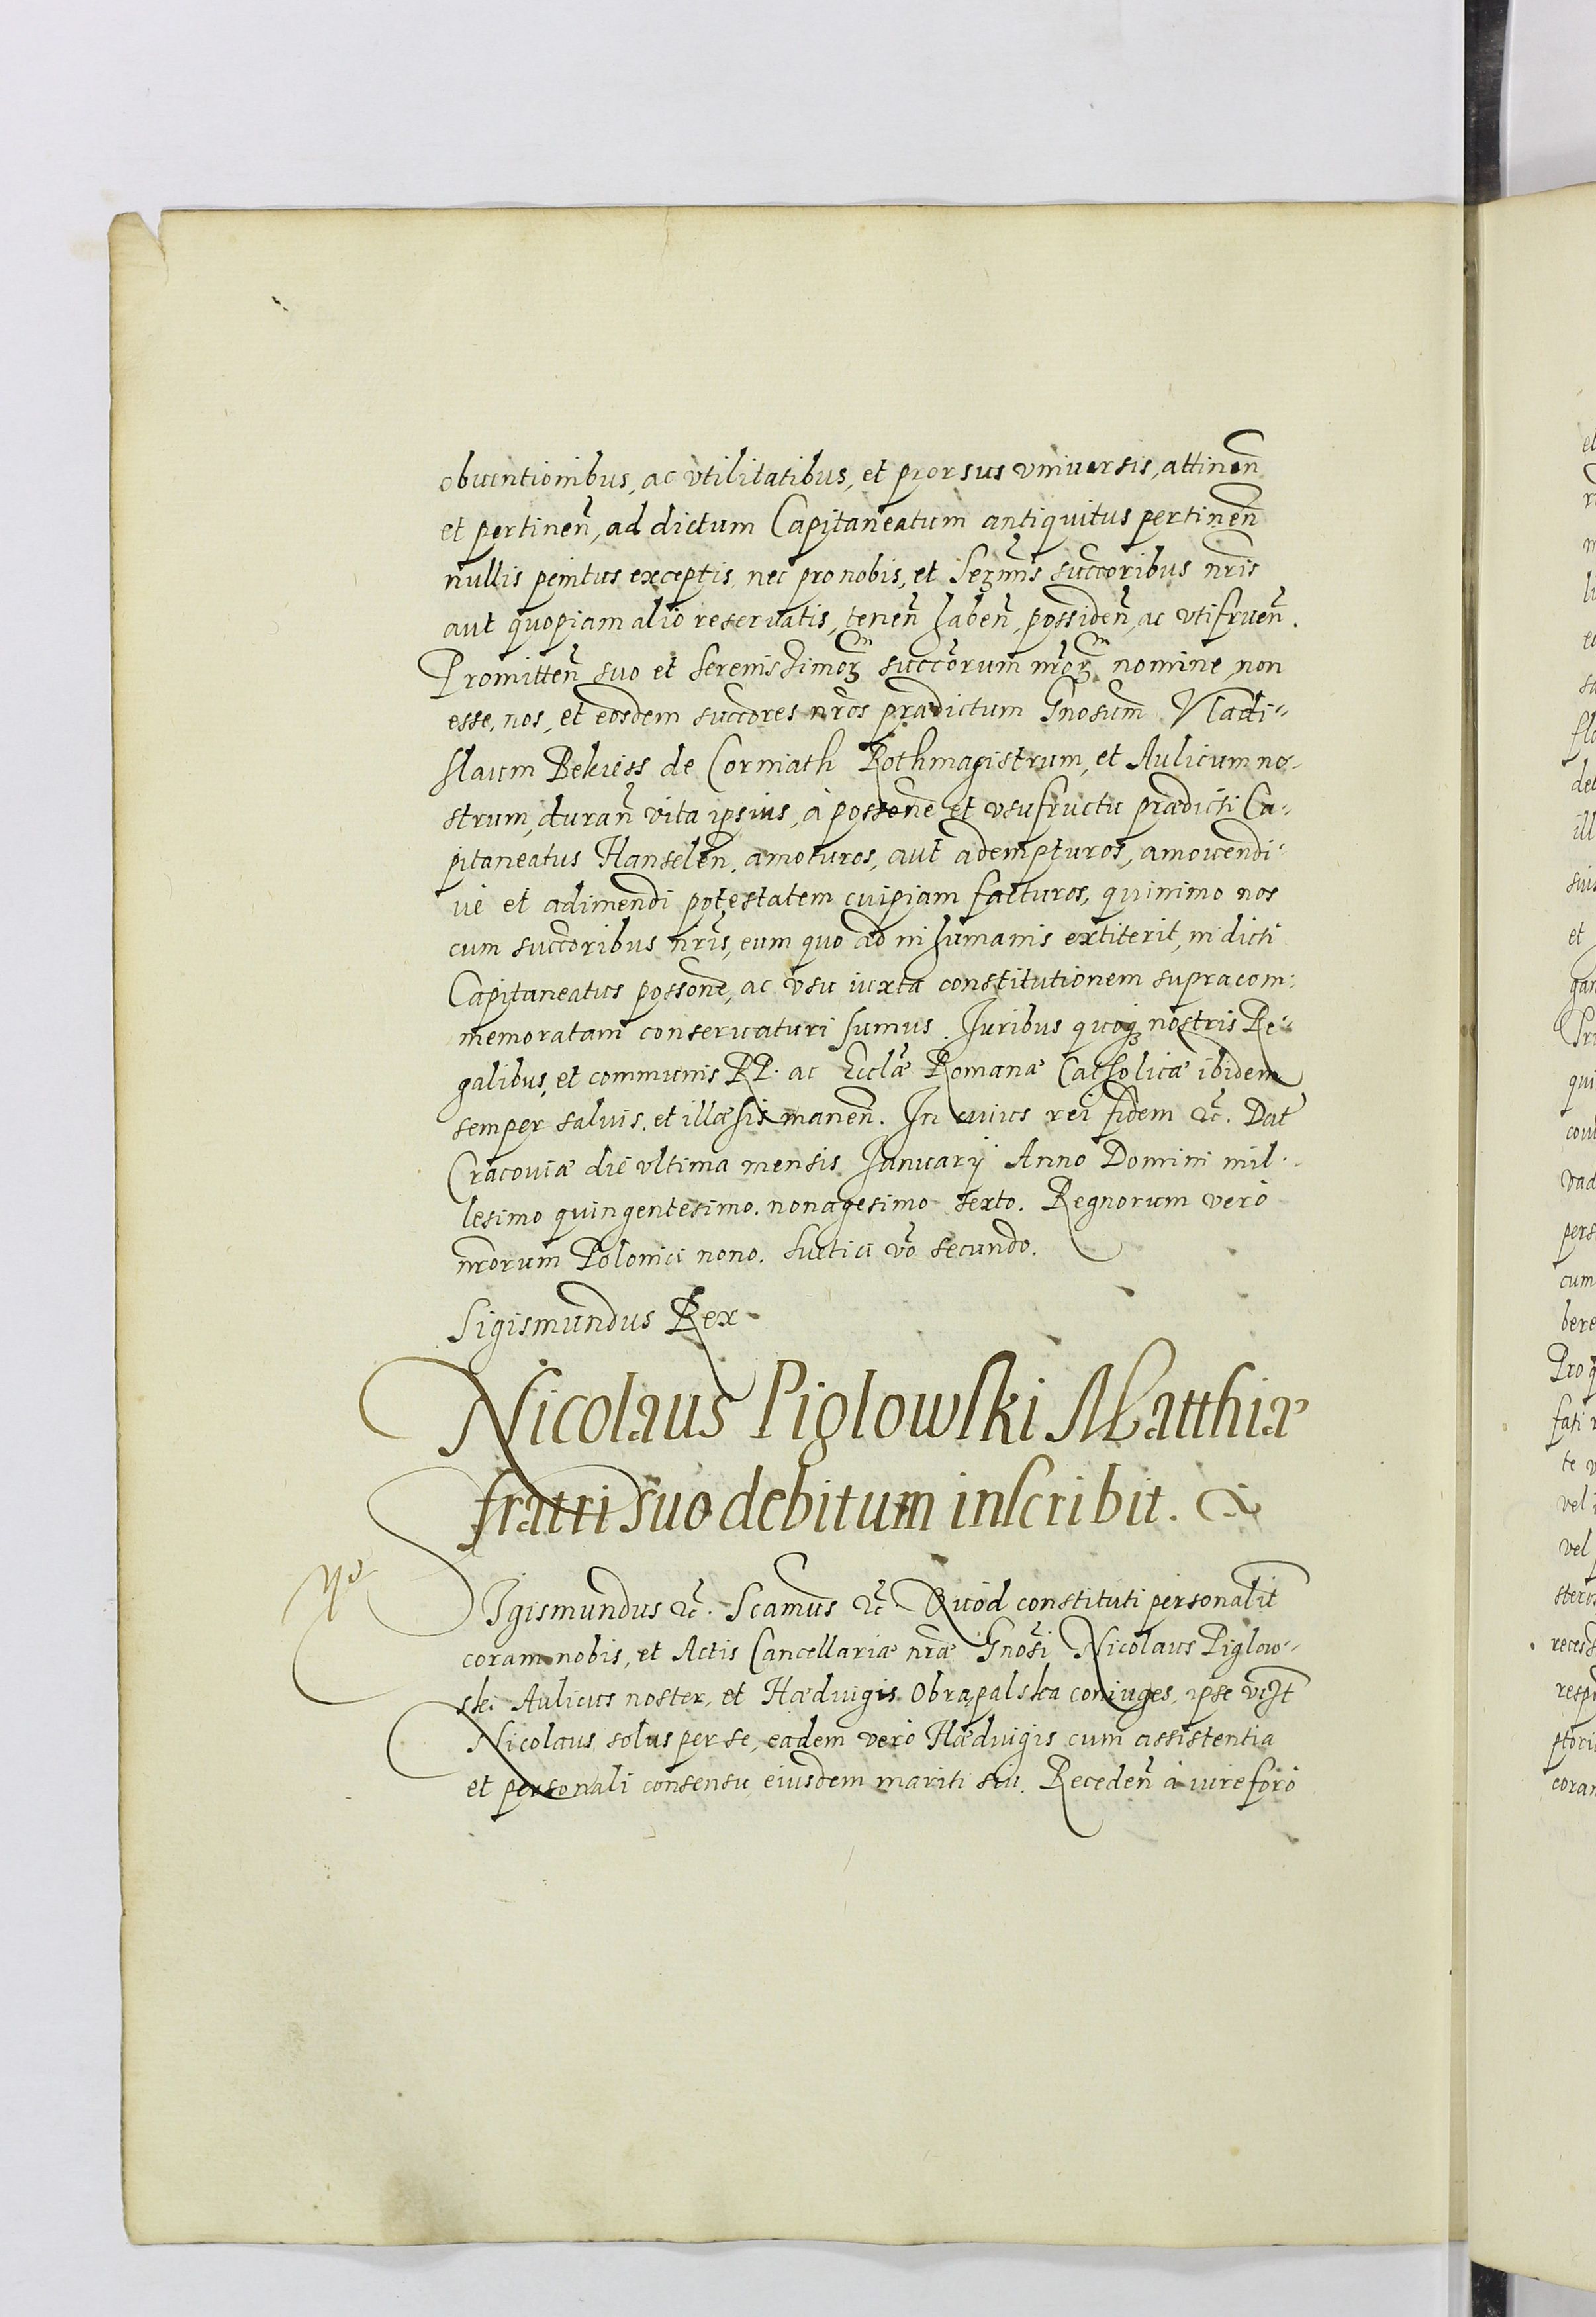 obuentionibus, ac vtilitatibus, et prorsus vniuersis, attineñ
et pertineñ, ad dictum Capitaneatum antiquitus pertineñ
nullis penitus exceptis, nec pro nobis, et Serm̃is succoribus nr̃is
aut quopiam alio reseruatis, teneñ habeñ, possideñ, ac vtifrueñ.
Promitteñ suo et Serenissimoꝝ succorum nr̃oꝝ nomine, non
esse, nos, et eosdem succores nr̃os prædictum Gnosum Vladi-
slaum Bekiess de Corniath Rothmagistrum, et Aulicum no-
strum, durañ vita ipsius, à possone et vsufructu prædicti Ca-
pitaneatus Hanselen, amoturos, aut adempturos, amouendi-
ue et adimendi potestatem cuipiam facturos, quinimo nos
cum succoribus nr̃is, eum quo ad in humanis extiterit, in dicti
Capitaneatus possone, ac vsu iuxta constitutionem supracom-
memoratam conseruaturi sumus. Iuribus quoqꝫ nostris Re-
galibus, et communis RP. ac Ecclæ Romanæ Catholicæ ibidem
semper saluis, et illæsis maneñ. In cuius rei fidem &c. Dat̃
Cracouiæ die vltima mensis Ianuarij Anno Domini mil-
lesimo quingentesimo nonagesimo sexto. Regnorum vero
nr̃orum Polonici nono. Suetici võ secundo.
Sigismundus Rex
Nicolaus Piglowski Matthiæ
fratri suo debitum inscribit. &
SIgismundus &c. Scamus &c. Quod constituti personalit̃
coram nobis, et Actis Cancellariæ nr̃æ Gnosi Nicolaus Piglow-
ski Aulicus noster, et Hæduigis Obrapalska coniuges, ipse
Nicolaus solus per se, eadem vero Hæduigis cum assistentia
et personali consensu eiusdem mariti sui. Recedeñ à iure foro